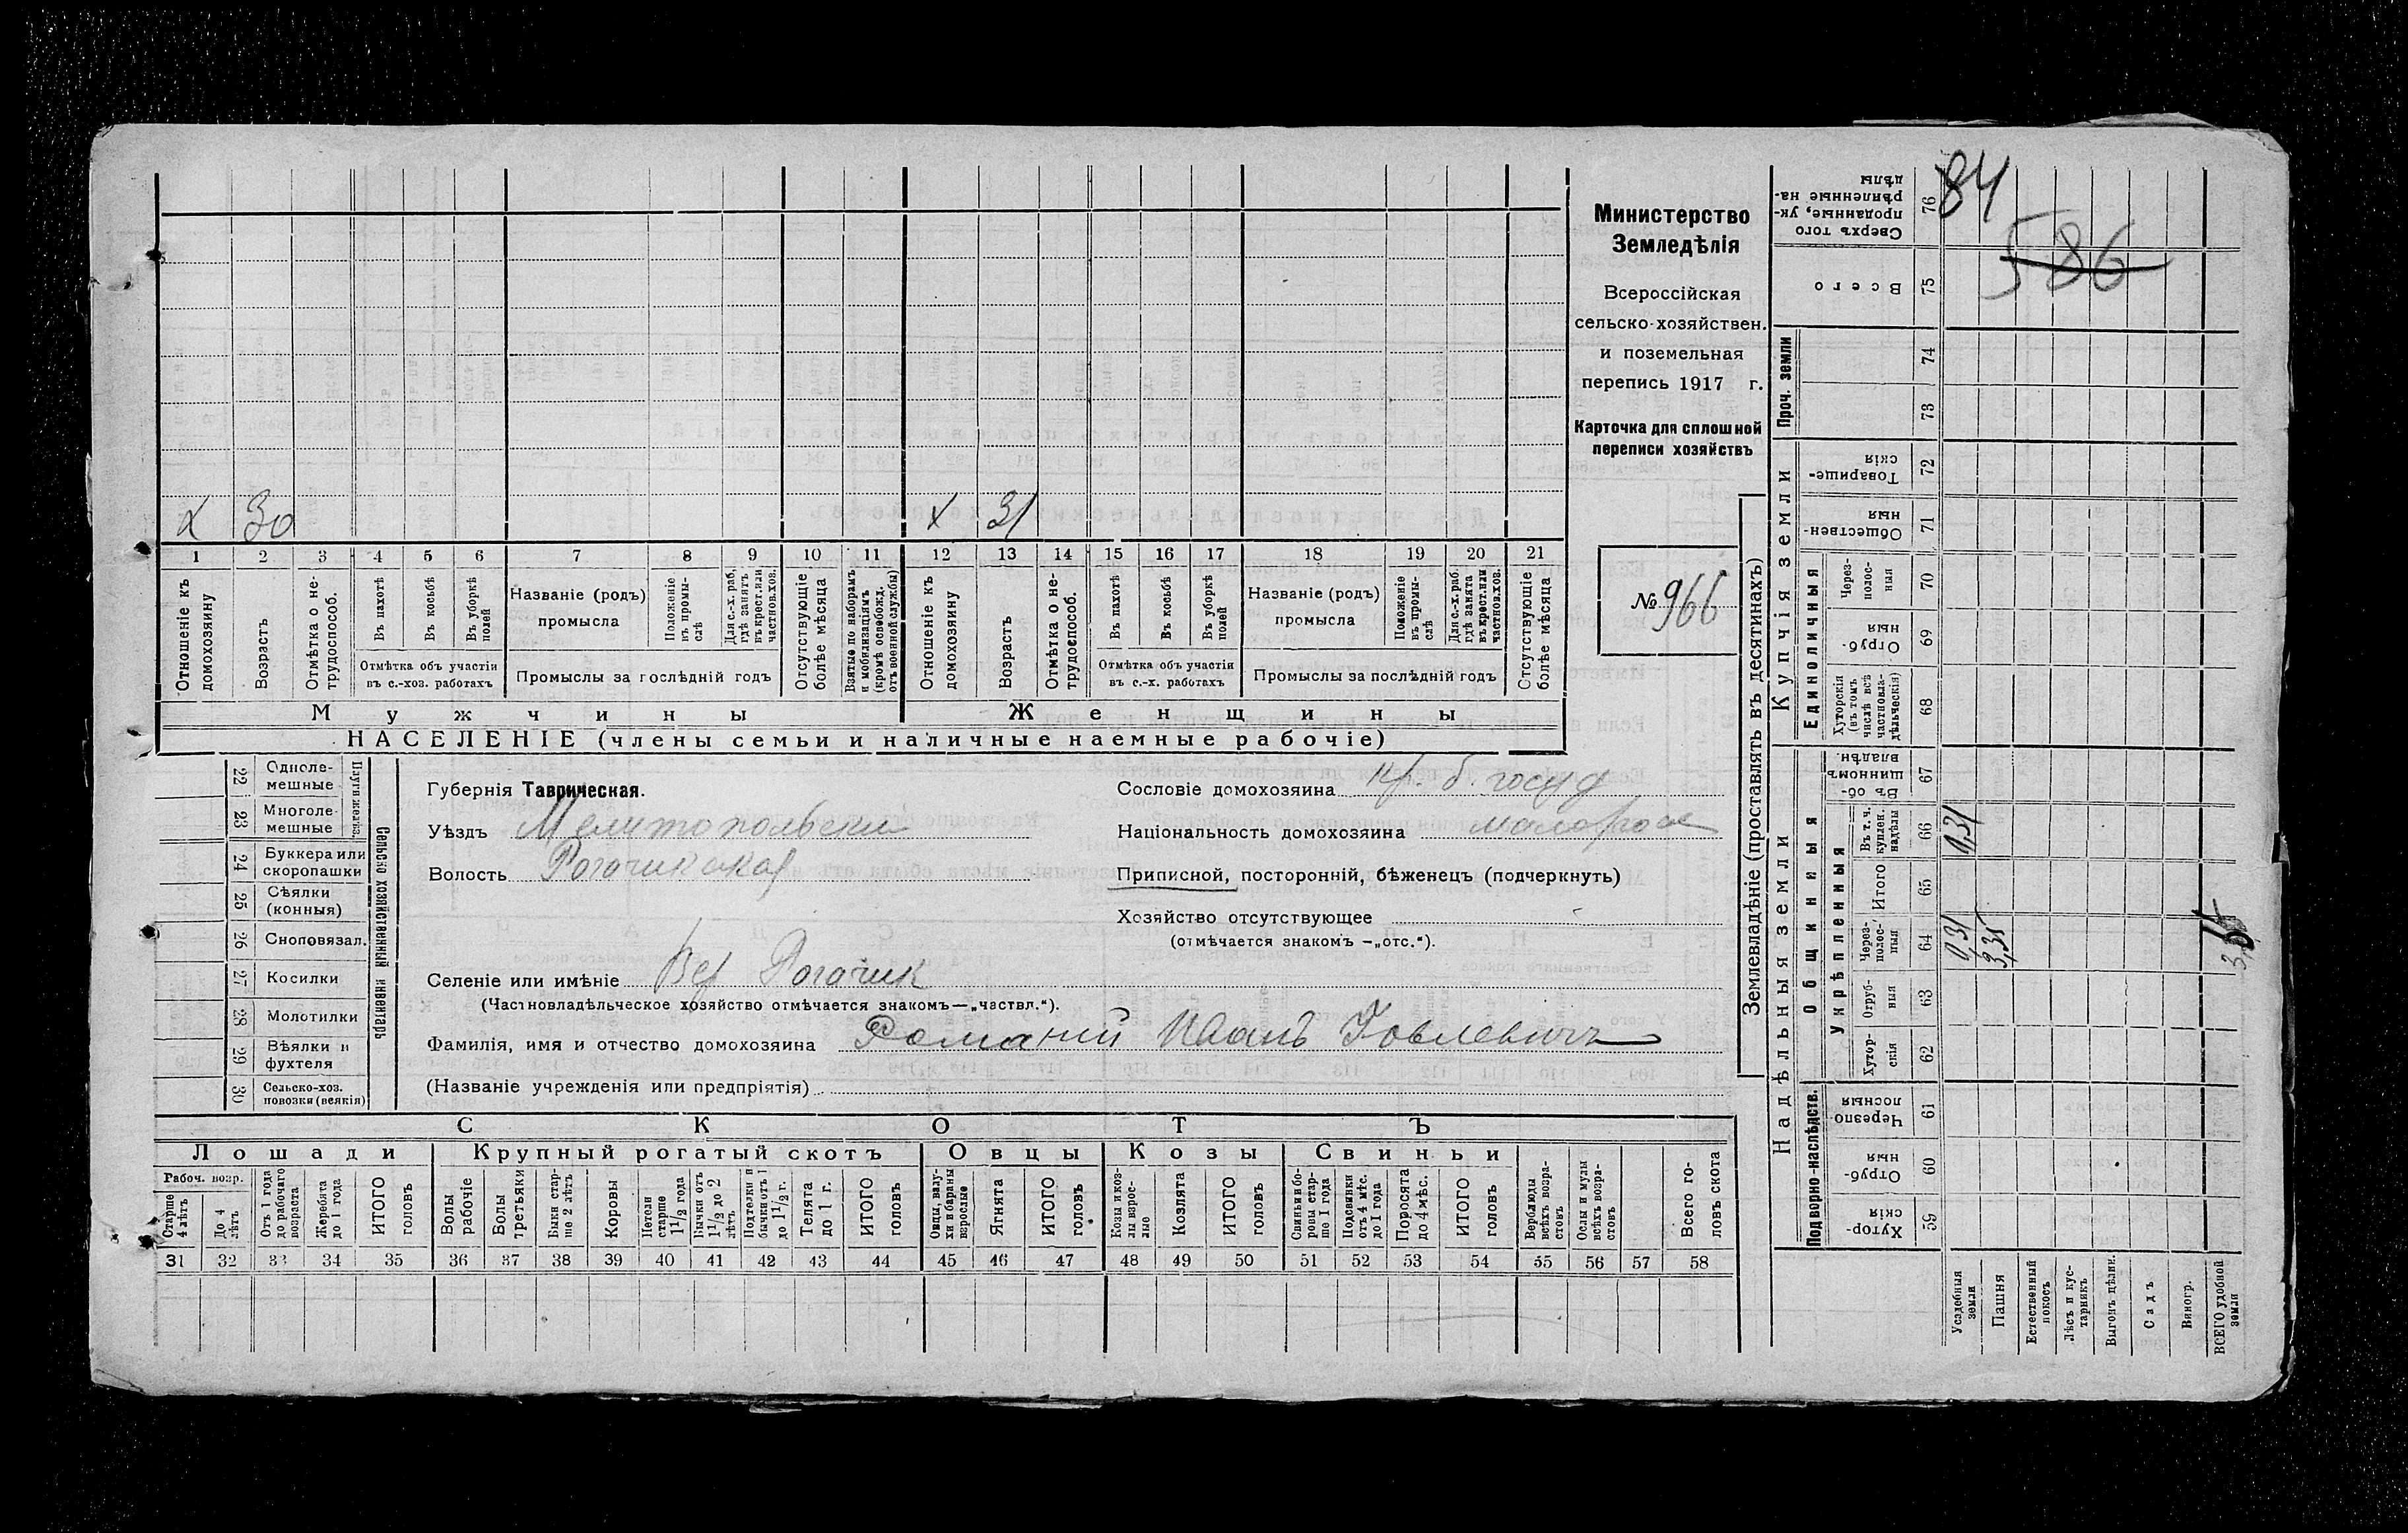 Министерство
Земледѣлія
Всероссійская
сельско-хозяйствен.
и поземельная
перепись 1917 г.
Карточка для сплошной
переписи хозяйствъ
№ 966
84
586
х 30 х 31
1 2 3 4 5 6 7 8 9 10 11 12 13 14 15 16 17 18 19 20 21
Отношеніе къ домохозяину
Возрастъ
Отмѣтка о не-трудоспособ.
Въ пахотѣ
Въ косьбѣ
Въ уборкѣ полей
Отмѣтка объ участіи
въ с.-хоз. работахъ
Названіе (родъ)
промысла
Положеніе въ промы-слѣ
Для с.-х. раб. гдѣ занятъ въ крест. или частнов. хоз.
Промыслы за послѣдній годъ
Отсутствующіе болѣе мѣсяца
Взятые по наборамъ и мобилизаціямъ (кромѣ освобожд. отъ военной службы)
Отношеніе къ домохозяину
Возрастъ
Отмѣтка о не-трудоспособ.
Въ пахотѣ
Въ косьбѣ
Въ уборкѣ полей
Отмѣтка объ участіи
въ с.-х. работахъ
Названіе (родъ)
промысла
Положеніе въ промы-слѣ
Для с.-х. раб. гдѣ занята въ крест. или частнов. хоз.
Промыслы за послѣдній годъ
Отсутствующіе болѣе мѣсяца
Мужчины Женщины
НАСЕЛЕНІЕ (члены семьи и наличные наемные рабочіе)
Сельско хозяйственный инвентарь
22 Одноле-мешные
23 Многоле-мешные
24 Буккера или скоропашки
25 Сѣялки (конныя)
26 Сноповязал.
27 Косилки
28 Молотилки
29 Вѣялки и фухтеля
30 Сельско-хоз. повозки (всякія)
Губернія Таврическая.
Уѣздъ Мелитопольски
Волость Рогачикская
Селеніе или имѣніе Вер Рогачик
(Частновладѣльческое хозяйство отмѣчается знакомъ—„частвл.“).
Фамилія, имя и отчество домохозяина Романий Иванъ Іовлевичъ
(Названіе учрежденія или предпріятія)
Сословіе домохозяина кр. б. госуд
Національность домохозяина малоросс
Приписной, посторонній, бѣженецъ (подчеркнуть)
Хозяйство отсутствующее
(отмѣчается знакомъ —„отс.“).
СКОТЪ
Лошади Крупный рогатый скотъ Овцы Козы Свиньи
Рабоч. возр.
Старше 4 лѣтъ
До 4 лѣтъ
Отъ 1 года до рабочаго возраста
Жеребята до 1 года
ИТОГО головъ
Волы рабочіе
Волы третьяки
Быки стар-ше 2 лѣтъ
Коровы
Нетели старше 1 1/2 года
Бычки отъ 1 1/2 до 2 лѣтъ
Подтелки и бычки отъ 1 до 1 1/2 г.
Телята до 1 г.
ИТОГО головъ
Овцы, валу-хи и бараны взрослые
Ягнята
ИТОГО головъ
Козы и коз-лы взрос-лые
Козлята
ИТОГО головъ
Свиньи и бо-ровы стар-ше 1 года
Подсвинки отъ 4 мѣс. до 1 года
Поросята до 4 мѣс.
ИТОГО головъ
Верблюды всѣхъ возра-стовъ
Ослы и мулы всѣхъ возра-стовъ
Всего го-ловъ скота
31 32 33 34 35 36 37 38 39 40 41 42 43 44 45 46 47 48 49 50 51 52 53 54 55 56 57 58
Землевладѣніе (проставлять въ десятинахъ)
Надѣльныя земли
Купчія земли
Проч. земли
Подворно-наслѣдств.
Общинныя
Укрѣпленныя
Единоличныя
Сверхъ того проданные, ук-рѣпленные на-дѣлы 76
Всего 75
74
73
Товарище-скія 72
Обществен-ныя 71
Через-полос-ныя 70
Отруб-ныя 69
Хуторскія (въ томъ числѣ всѣ частновла-дѣльческія) 68
Въ об-щинномъ владѣн. 67
Въ т. ч. куплен. надѣлы 66 0,31
Итого 65
Через-полос-ныя 64 0,31 3,35
Отруб-ныя 63
Хутор-скія 62
Черезпо-лосныя 61
Отруб-ныя 60
Хутор-скія 59
Усадебныя земли
Пашня
Естественный покосъ
Лѣсъ и кус-тарникъ
Выгонъ цѣлин.
Садъ
Виногр.
ВСЕГО удобной земли